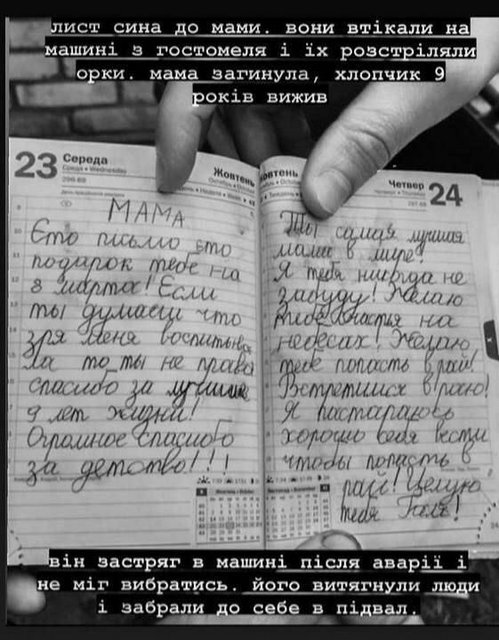 лист сина до мами. вони втікали на
машині з гостомеля і їх розстріляли
орки. мама загинула, хлопчик 9
років вижив
23 Середа
Жовтень
МАМА
Єто письмо єто
подарок тебе на
8 марта! Если
ты думаеш что
зря меня воспитыва
ла то ты не права
спасибо за лучшие
9 лет жизни!
Огромное спасибо
за детство!!!
Жовтень
Четвер 24
Ты самая лучшая
мама в мире!
Я тебя никогда не
забуду! Желаю
тебе счастья на
небесах! Желаю
тебе попасть в рай!
Встретимся в раю!
Я постараюсь
хорошо себя вести
чтобы попасть в
рай! Целую
тебя
він застряг в машині після аварії і
не міг вибратись. його витягнули люди
і забрали до себе в підвал.